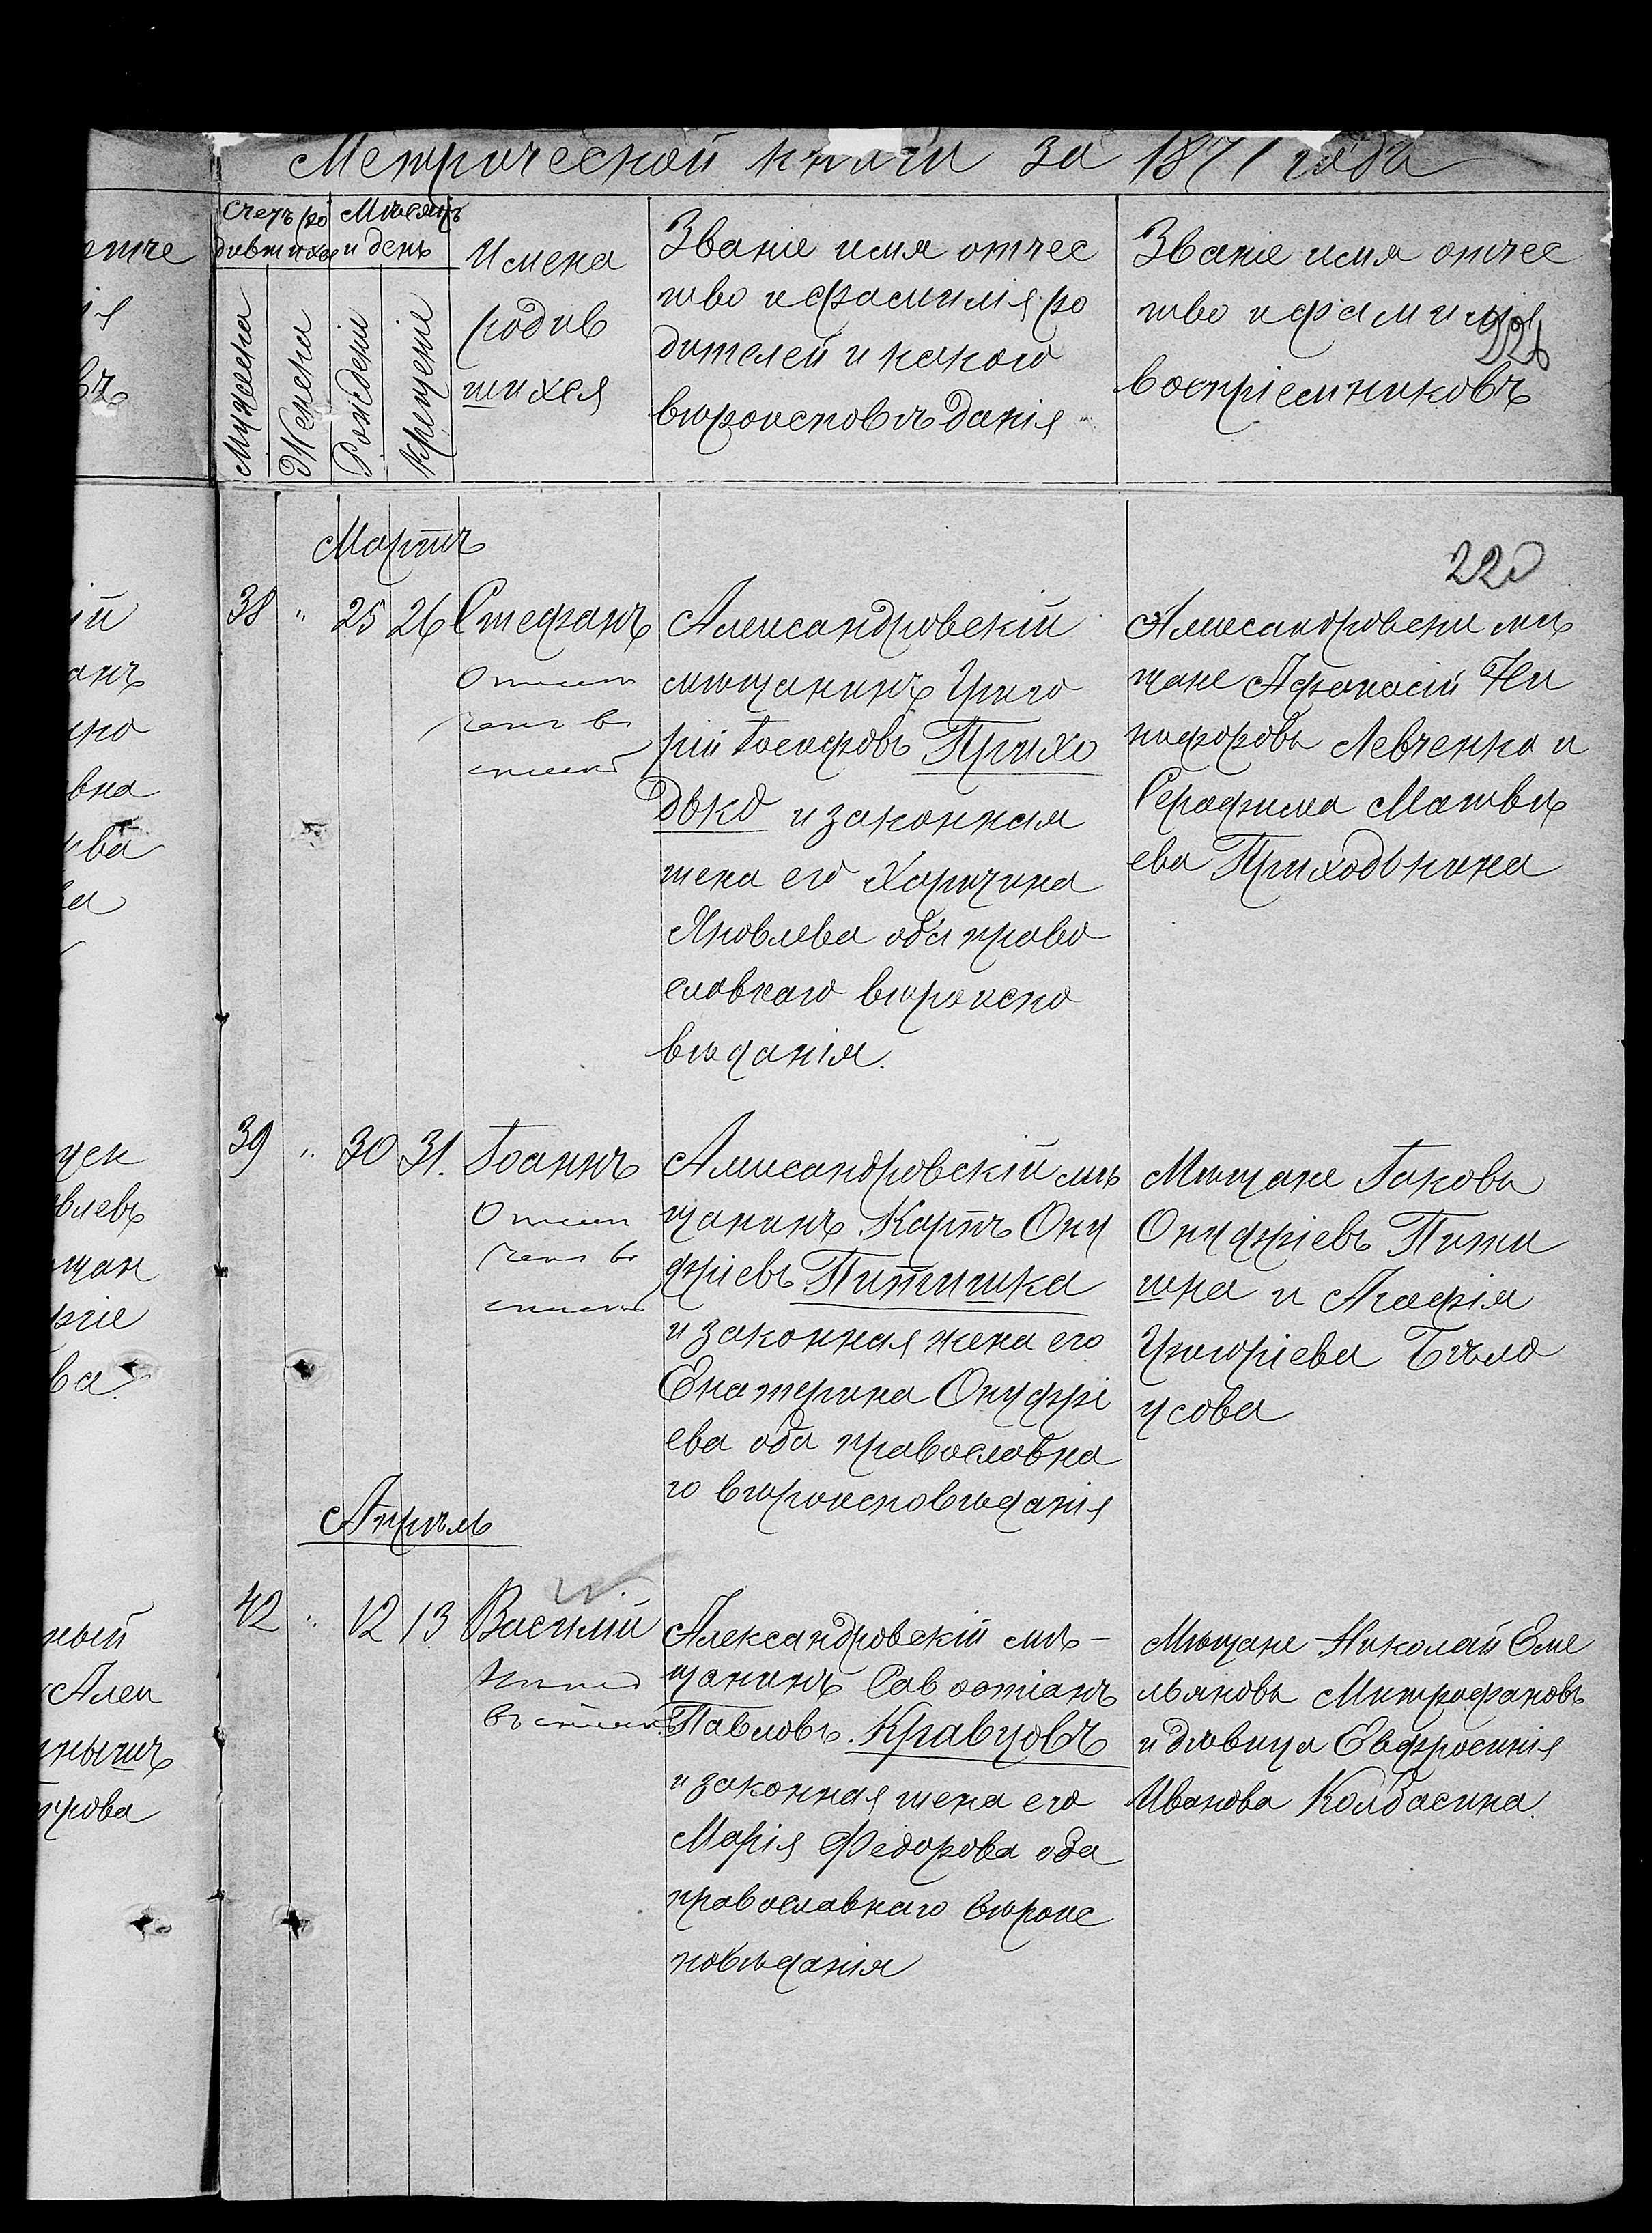 Метрической книги за 1871 года
Счетъ ро
дившихся
Мѣсяцъ
и день
Мужеска
Женска
Рожденія
Крещенія
Имена
родив
шихся
Званіе имя отчес
тво и фамилія ро
дителей и какого
вѣроисповѣданія
Званіе имя отчес
тво и фамилія
воспріемниковъ
226
Мартъ
220
38 " 25 26 Стефанъ
Александровскій
мѣщанинъ Григо
рій Іосифовъ Прихо
дько и законная
жена его Харитина
Яковлева оба право
славнаго вѣроиспо
вѣданія.
Александровскіи мѣ
щане Афанасій Ни
кифоровъ Левченко и
Серафима Матвѣ
ева Приходькина
39 " 30 31. Іоаннъ
Александровскій мѣ
щанинъ Карпъ Ону
фріевъ Питишка
и законная жена его
Екатерина Онуфрі
ева оба православна
го вѣроисповѣданія
Мѣщане Іаковъ
Онуфріевъ Пити
шка и Агафія
Григоріева Бѣло
усова
Апрѣль
42 " 12 13 Василій
Александровскій мѣ-
щанинъ Савостіанъ
Павловъ Кравцовъ
и законная жена его
Марія Федорова оба
православнаго вѣроис
повѣданія
Мѣщане Николай Еме
льяновъ Митрофановъ
и дѣвица Евфросинія
Иванова Колбасина.